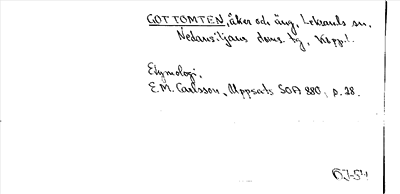 GOTTOMTEN, åker och äng, Leksands sn.
Nedansiljans doms. tg, Kopp.l.
Etymologi.
E.M. Carlsson, Uppsats SOA 880, p. 28.